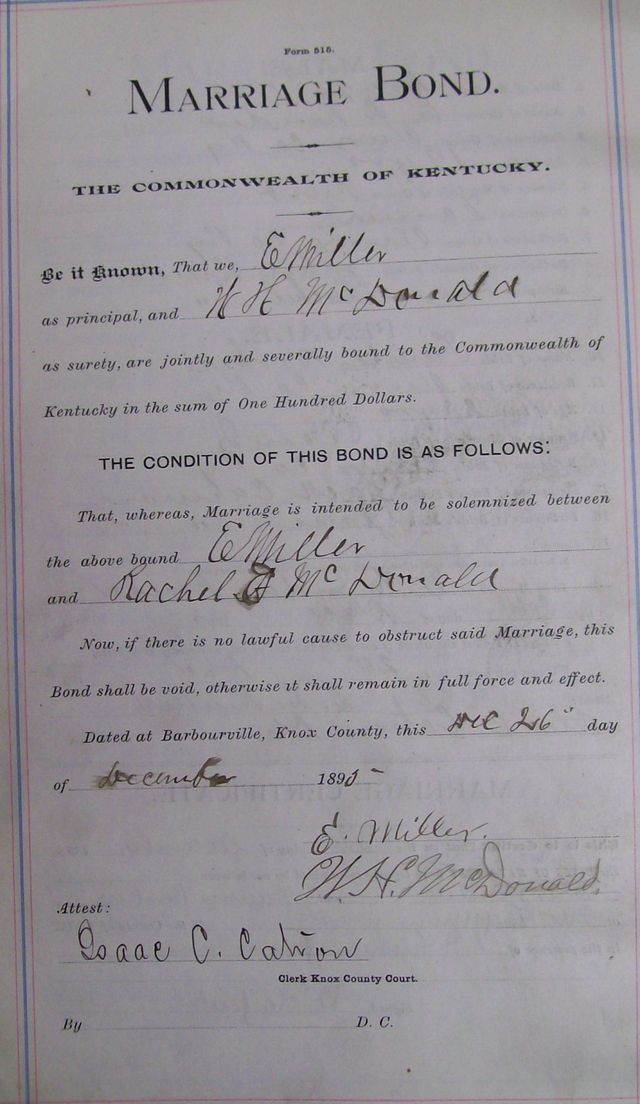 Form 515.
MARRIAGE BOND.
THE COMMONWEALTH OF KENTUCKY.
Be it Known, That we, E Miller
as principal, and W H McDonald
as surety, are jointly and severally bound to the Commonwealth of
Kentucky in the sum of One Hundred Dollars.
THE CONDITION OF THIS BOND IS AS FOLLOWS:
That, whereas, Marriage is intended to be solemnized between
the above bound E Miller
and Rachel McDonald
Now, if there is no lawful cause to obstruct said Marriage, this
Bond shall be void, otherwise it shall remain in full force and effect.
Dated at Barbourville, Knox County, this Dec 26" day
of December 1895
E. Miller.
W. H. McDonald.
Attest:
Isaac C. Catron
Clerk Knox County Court.
By D. C.